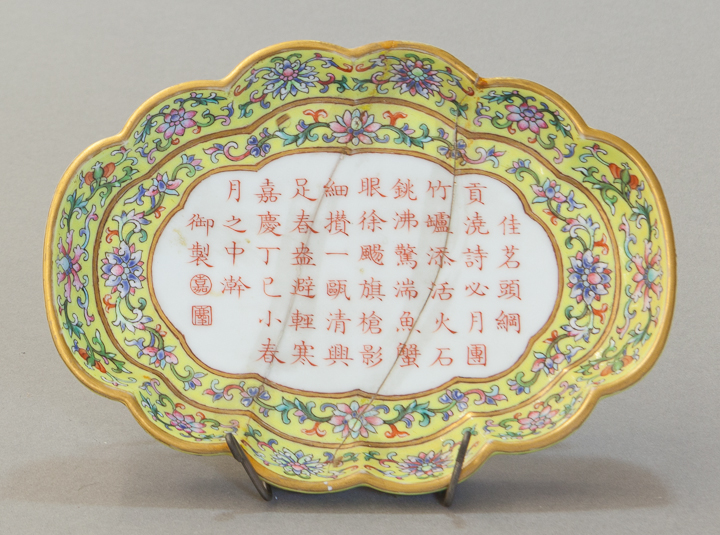 佳茗頭綱
貢澆詩必月團
竹爐添活火石
銚沸驚湍魚蟹
眼徐颺旗槍影
細攅一甌清興
足春盎避輕寒
嘉慶丁巳小春
月之中澣
御製嘉